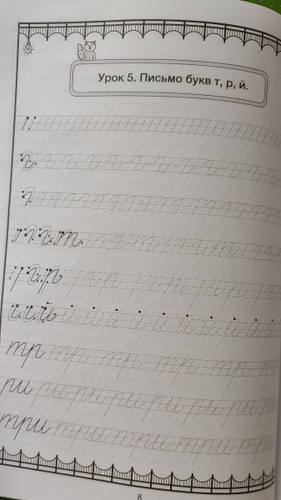 Урок 5. Письмо букв т, р, й.
т
р
й
тр тр тр тр тр тр
ри ри ри ри ри ри ри
три три три три три
8